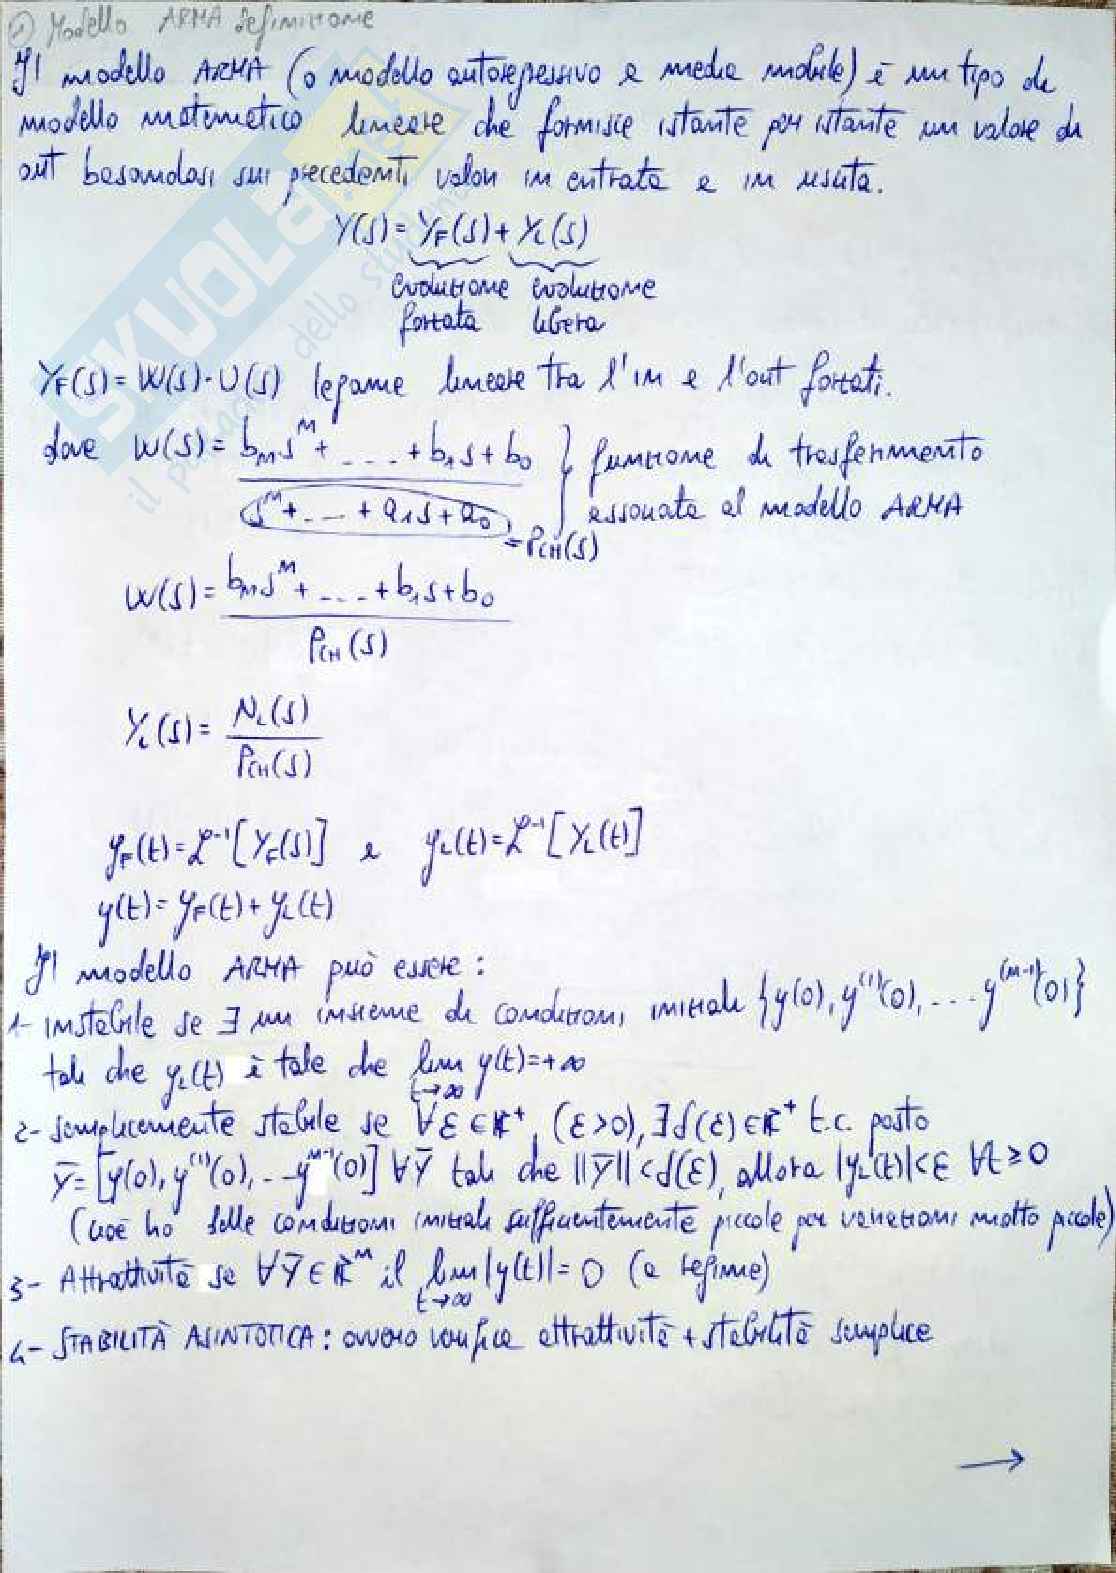 1) Modello ARMA definizione
Il modello ARMA (o modello autoregressivo e media mobile) è un tipo di
modello matematico lineare che fornisce istante per istante un valore di
out basandosi sui precedenti valori in entrata e in uscita.
Y(s) = Y_F(s) + Y_L(s)
evoluzione evoluzione
forzata libera
Y_F(s) = W(s)·U(s) legame lineare tra l'in e l'out forzati.
dove W(s) = (b_m s^m + .... + b_1 s + b_0) / (s^n + .... + a_1 s + a_0) } funzione di trasferimento
associata al modello ARMA
= P_CH(s)
W(s) = (b_m s^m + .... + b_1 s + b_0) / P_CH(s)
Y_L(s) = N_L(s) / P_CH(s)
y_F(t) = ℒ^-1 [Y_F(s)] e y_L(t) = ℒ^-1 [Y_L(t)]
y(t) = y_F(t) + y_L(t)
Il modello ARMA può essere:
1- instabile se ∃ un insieme di condizioni iniziali {y(0), y^(1)(0), .... y^(n-1)(0)}
tali che y_L(t) è tale che lim t→∞ y(t) = +∞
2- semplicemente stabile se ∀ε∈ℝ^+, (ε>0), ∃δ(ε)∈ℝ^+ t.c. posto
ȳ = [y(0), y^(1)(0), ... y^n-1(0)] ∀ȳ tali che ||ȳ|| < δ(ε), allora |y_L(t)| < ε ∀t ≥ 0
(cioè ho delle condizioni iniziali sufficientemente piccole per variazioni molto piccole)
3- Attrattività se ∀ȳ∈ℝ^n il lim t→∞ |y(t)| = 0 (a regime)
4- STABILITÀ ASINTOTICA: ovvero verifica attrattività + stabilità semplice
→
SKUOLA.net
il paradiso dello studente